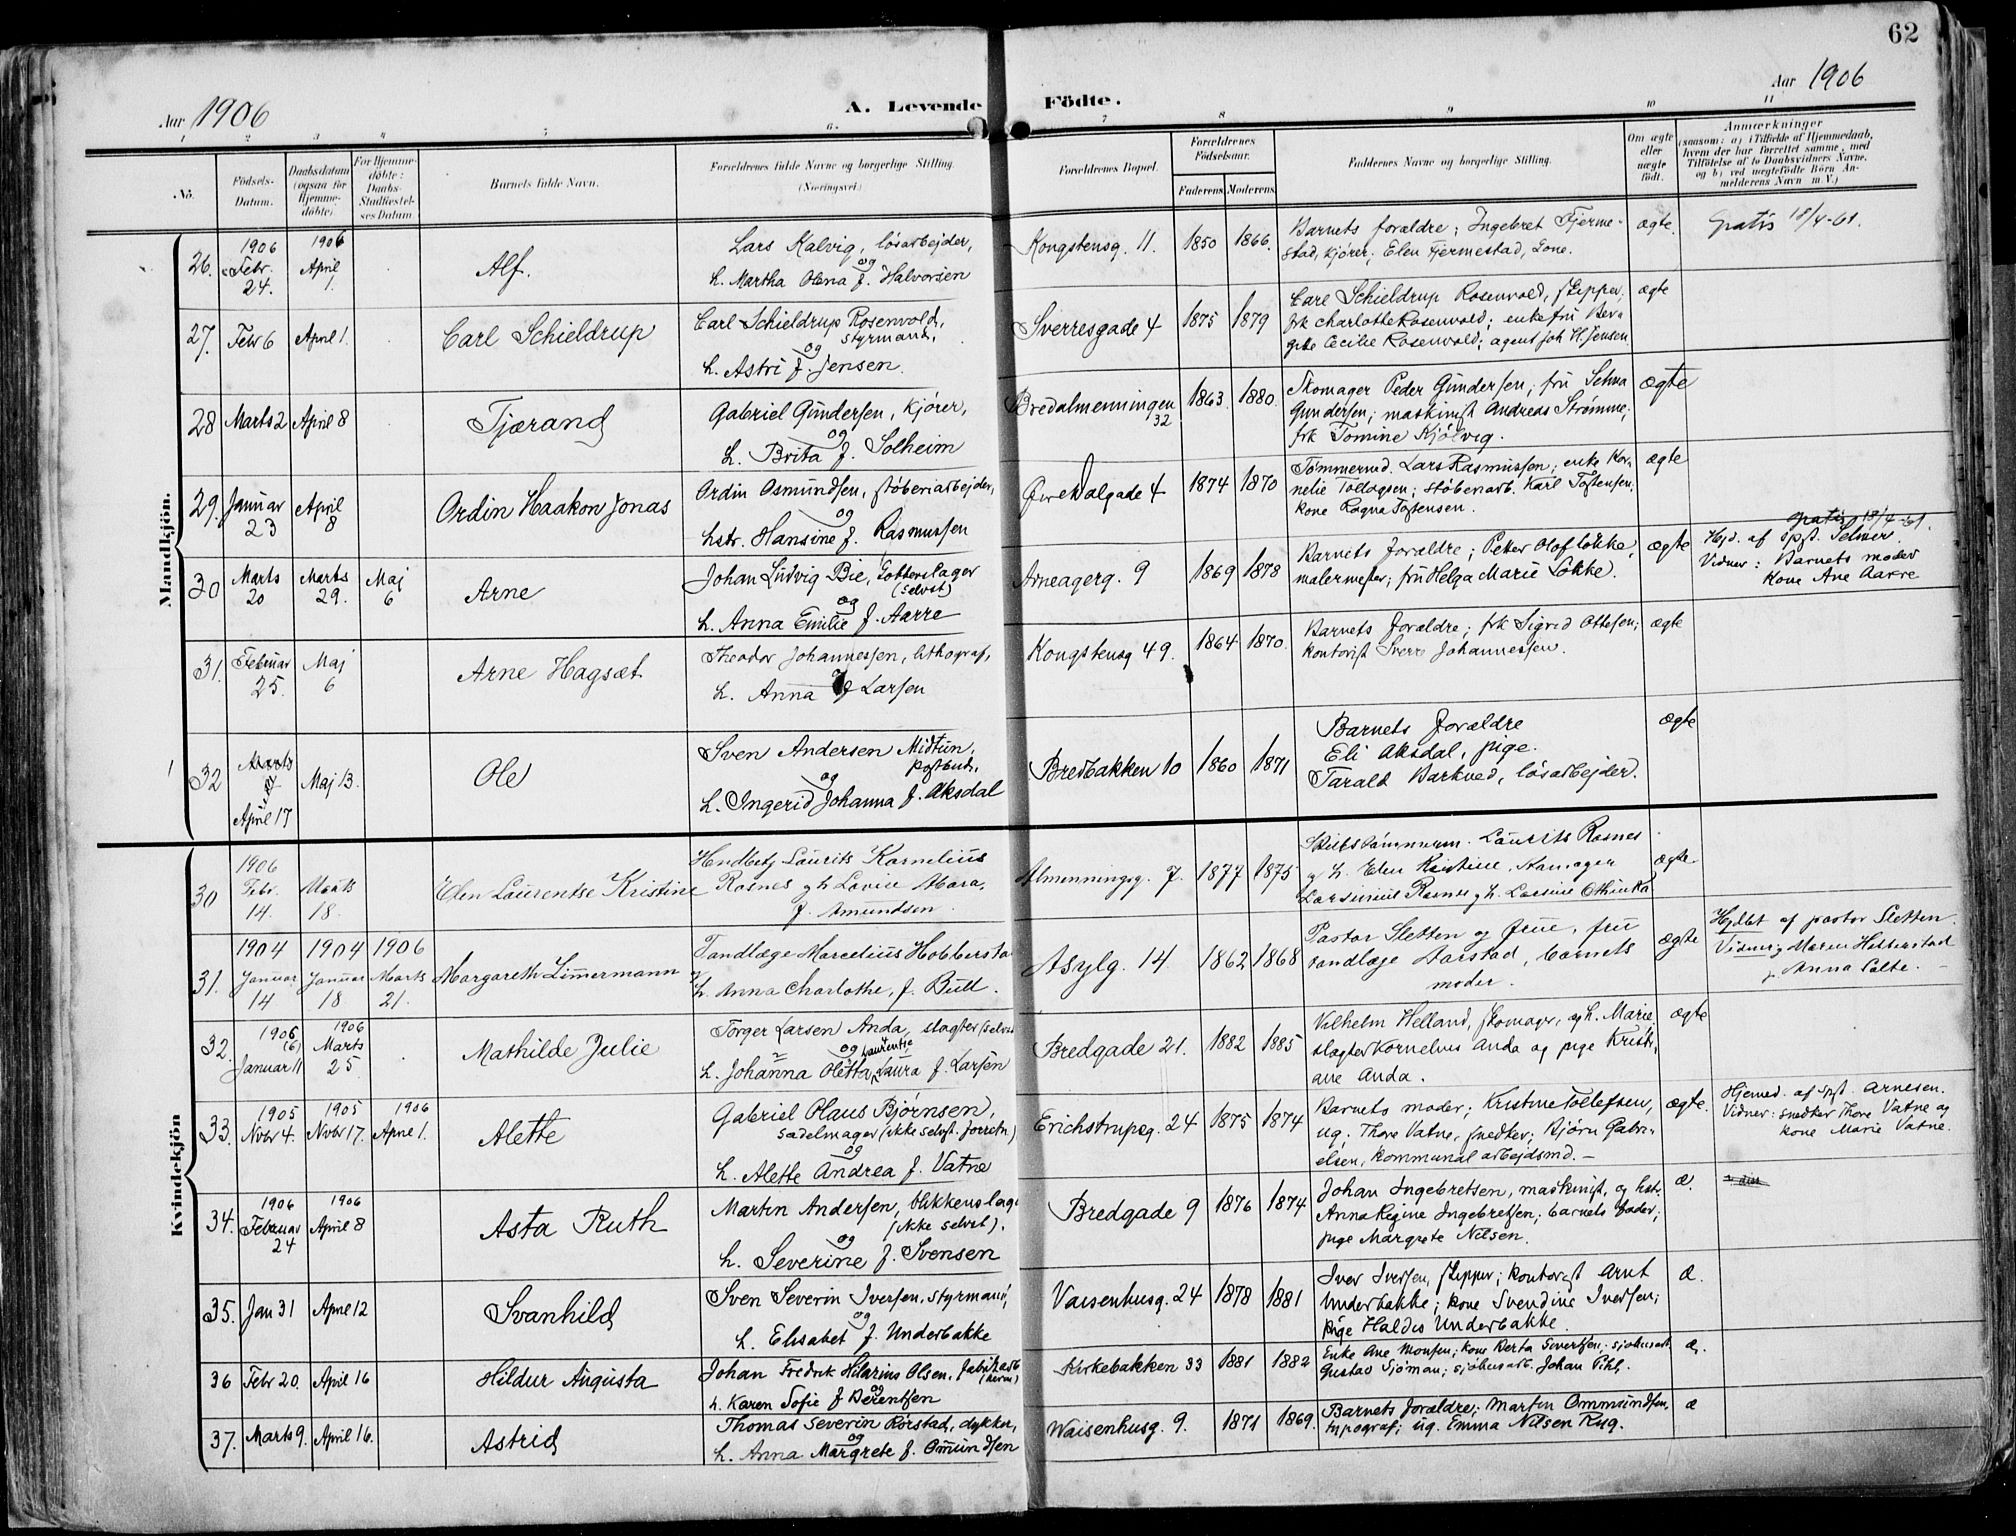 62
Aar 1906
A. Levende Födte.
Aar 1906
1 2 3 4 5 6 7 8 9 10 11
No.
Födsels-Datum.
Daabsdatum (ogsaa for Hjemme-döbte)
For Hjemme-döbte: Daabs-Stadfæstel-ses Datum
Barnets fulde Navn.
Forældrenes fulde Navne og borgerlige Stilling. (Næringsvei)
Forældrenes Bopæl.
Forældrenes Födselsaar.
Faderens. Moderens.
Faddernes Navne og borgerlige Stilling.
Om ægte eller uægte födt.
Anmærkninger
(saasom: a) i Tilfælde af Hjemmedaab,
hvem der har forrettet samme, med
Tilföielse af to Daabsvidners Navne,
og b) ved uægtefödte Börn An-
melderens Navn m. V.)
Mandkjön.
26. 1906 Febr. 24. 1906 April 1. Alf.
Lars Kalvig, løsarbejder,
og
h. Martha Olena f. Halvorsen
Kongstensg. 11. 1850 1866.
Barnets forældre; Ingebret Fjerme-
stad, kjører; Elen Fjermestad, Lone.
ægte. Gratis 18/4-61.
27. Febr 6 April 1. Carl Schieldrup
Carl Schieldrup Rosenvold,
styrmand,
og
h. Astri f. Jensen.
Sverresgade 4 1875 1879
Carl Schieldrup Rosenvold, skipper,
frk Charlotte Rosenvold; enkefru Ber-
gete Cecilie Rosenvold; agent Joh H. Jensen
ægte
28 Marts 2 April 8 Tjærand
Gabriel Gundersen, kjører,
og
h. Brita f. Solheim
Bredalmenningen 32 1863 1880.
Skomager Peder Gundersen; fru Selma
Gundersen; maskinist Andreas Strømme;
frk Tomine Kjølvig.
ægte
29. Januar 23 April 8 Ordin Haakon Jonas
Ordin Osmundsen, støberiarbejder,
og
hstr. Hansine f. Rasmussen
Øvre Dalgade 4 1874 1870
Tømmermd. Lars Rasmussen; enke Kor-
nelie Tollagsen; støberiarb. Karl Tostensen,
kone Ragna Tostensen.
ægte
30 Marts 20 Marts 29. Maj 6 Arne
Johan Ludvig Bie, Gørtlerslager
(selvst)
og
h. Anna Emilie f. Aarre
Arneagerg. 9 1869 1878
Barnets forældre; Petter Olof Løkke,
malermester; fru Helga Marie Løkke.
ægte
Gratis 18/4-61.
Hjd. af Spst. Selmer.
Vidner: Barnets moder
Kone Ane Aarre
31. Februar 25. Maj 6 Arne Hagsæt
Theodor Johannessen, lithograf,
h. Anna f Larsen
Kongstensg 49. 1864 1870.
Barnets forældre; frk Sigrid Ottesen;
kontorist Sverre Johannessen.
ægte
32 April 17 Maj 13. Ole
Sven Andersen Midtun,
postbud,
og
h. Ingerid Johanna f. Aksdal
Bredbakken 10 1860 1871
Barnets forældre
Eli Aksdal, pige.
Tarald Barkved, løsarbejder.
ægte
Kvindekjön
30 1906 Febr. 14. Marts 18. Elen Laurentse Kristine
Laurits Kornelius
Rosnes g h Lovise Mara,
f. Amundsen.
Almenningsg. 7. 1877 1875
Skibstømmerm. Laurits Rosnes
g h. Elen Kristine,
Rosnes g h. Lovise Othinka
ægte
31. 1904 Januar 14 1904 Januar 18 1906 Marts 21. Margareth Limmermann
Tandlæge Marcelius Hobbersta
g
h. Anna Charlothe, f. Bull.
Asylg. 14 1862 1868
Pastor Sletten og frue, fru
tandlæge Aarstad, barnets
moder.
ægte
Hjdbt af pastor Sletten.
Vidner: Maren Hetterstad
g Anna Salte.
32. 1906 (6) Januar 11 1906 Marts 25. Mathilde Julie
Torger Larsen Anda, slagter (selvst
og Laurentse
h. Johanna Oletta Laura f. Larsen
Bredgade 21. 1882 1885
Vilhelm Helland, skomager, og h. Marie,
slagter Kornelius Anda og pige Kristi-
ane Anda.
ægte
33. 1905 Novbr 4. 1905 Novbr 17. 1906 April 1. Alette
Gabriel Olaus Bjørnsen,
sadelmager (ikke selvst. forretn)
og
h. Alette Andrea f. Vatne
Erichstrupsg. 24 1875 1874
Barnets moder; Kristine Tollefsen,
ug. Thore Vatne, snedker; Bjørn Gabri-
elsen, kommunal arbejdsmd. —
ægte.
Hjemmed. af Spst. Arnesen.
Vidner: snedker Thore Vatne og
kone Marie Vatne.
34. 1906 Februar 24 1906 April 8 Asta Ruth
Martin Andersen, blikkenslag
(ikke selvst).
og
h. Severine f. Svensen
Bredgade 9 1876 1874
Johan Ingebretsen, maskinist, og hst.
Anna Regine Ingebretsen; barnets fader;
pige Margrete Nilsen.
æ.
35. Jan 31 April 12 Svanhild
Sven Severin Iversen, styrmand,
og
h. Elisabet f. Underbakke
Vaisenhusg. 24 1878 1881
Iver Iversen, skipper; kontorist Arnt
Underbakke; kone Svendine Iversen;
pige Haldis Underbakke.
æ.
36 Febr 20. April 16 Hildur Augusta
Johan Fredrik Hilarius Olsen, fabrikarb
(herm)
og
h. Karen Sofie f Berentsen
Kirkebakken 33 1881 1882
Enke Ane Monsen; kone Berta Sivertsen; sjøhusarb
Gustav Sjöman; sjøhusarb. Johan Pihl.
æ.
37. Marts 9. April 16. Astrid
Thomas Severin Rörstad, dykker,
og
h. Anna Margrete f. Omundsen
Waisenhusg. 9. 1871 1869.
Barnets forældre; Martin Ommundsen,
typograf; ug. Emma Nilsen Ryg.
æ